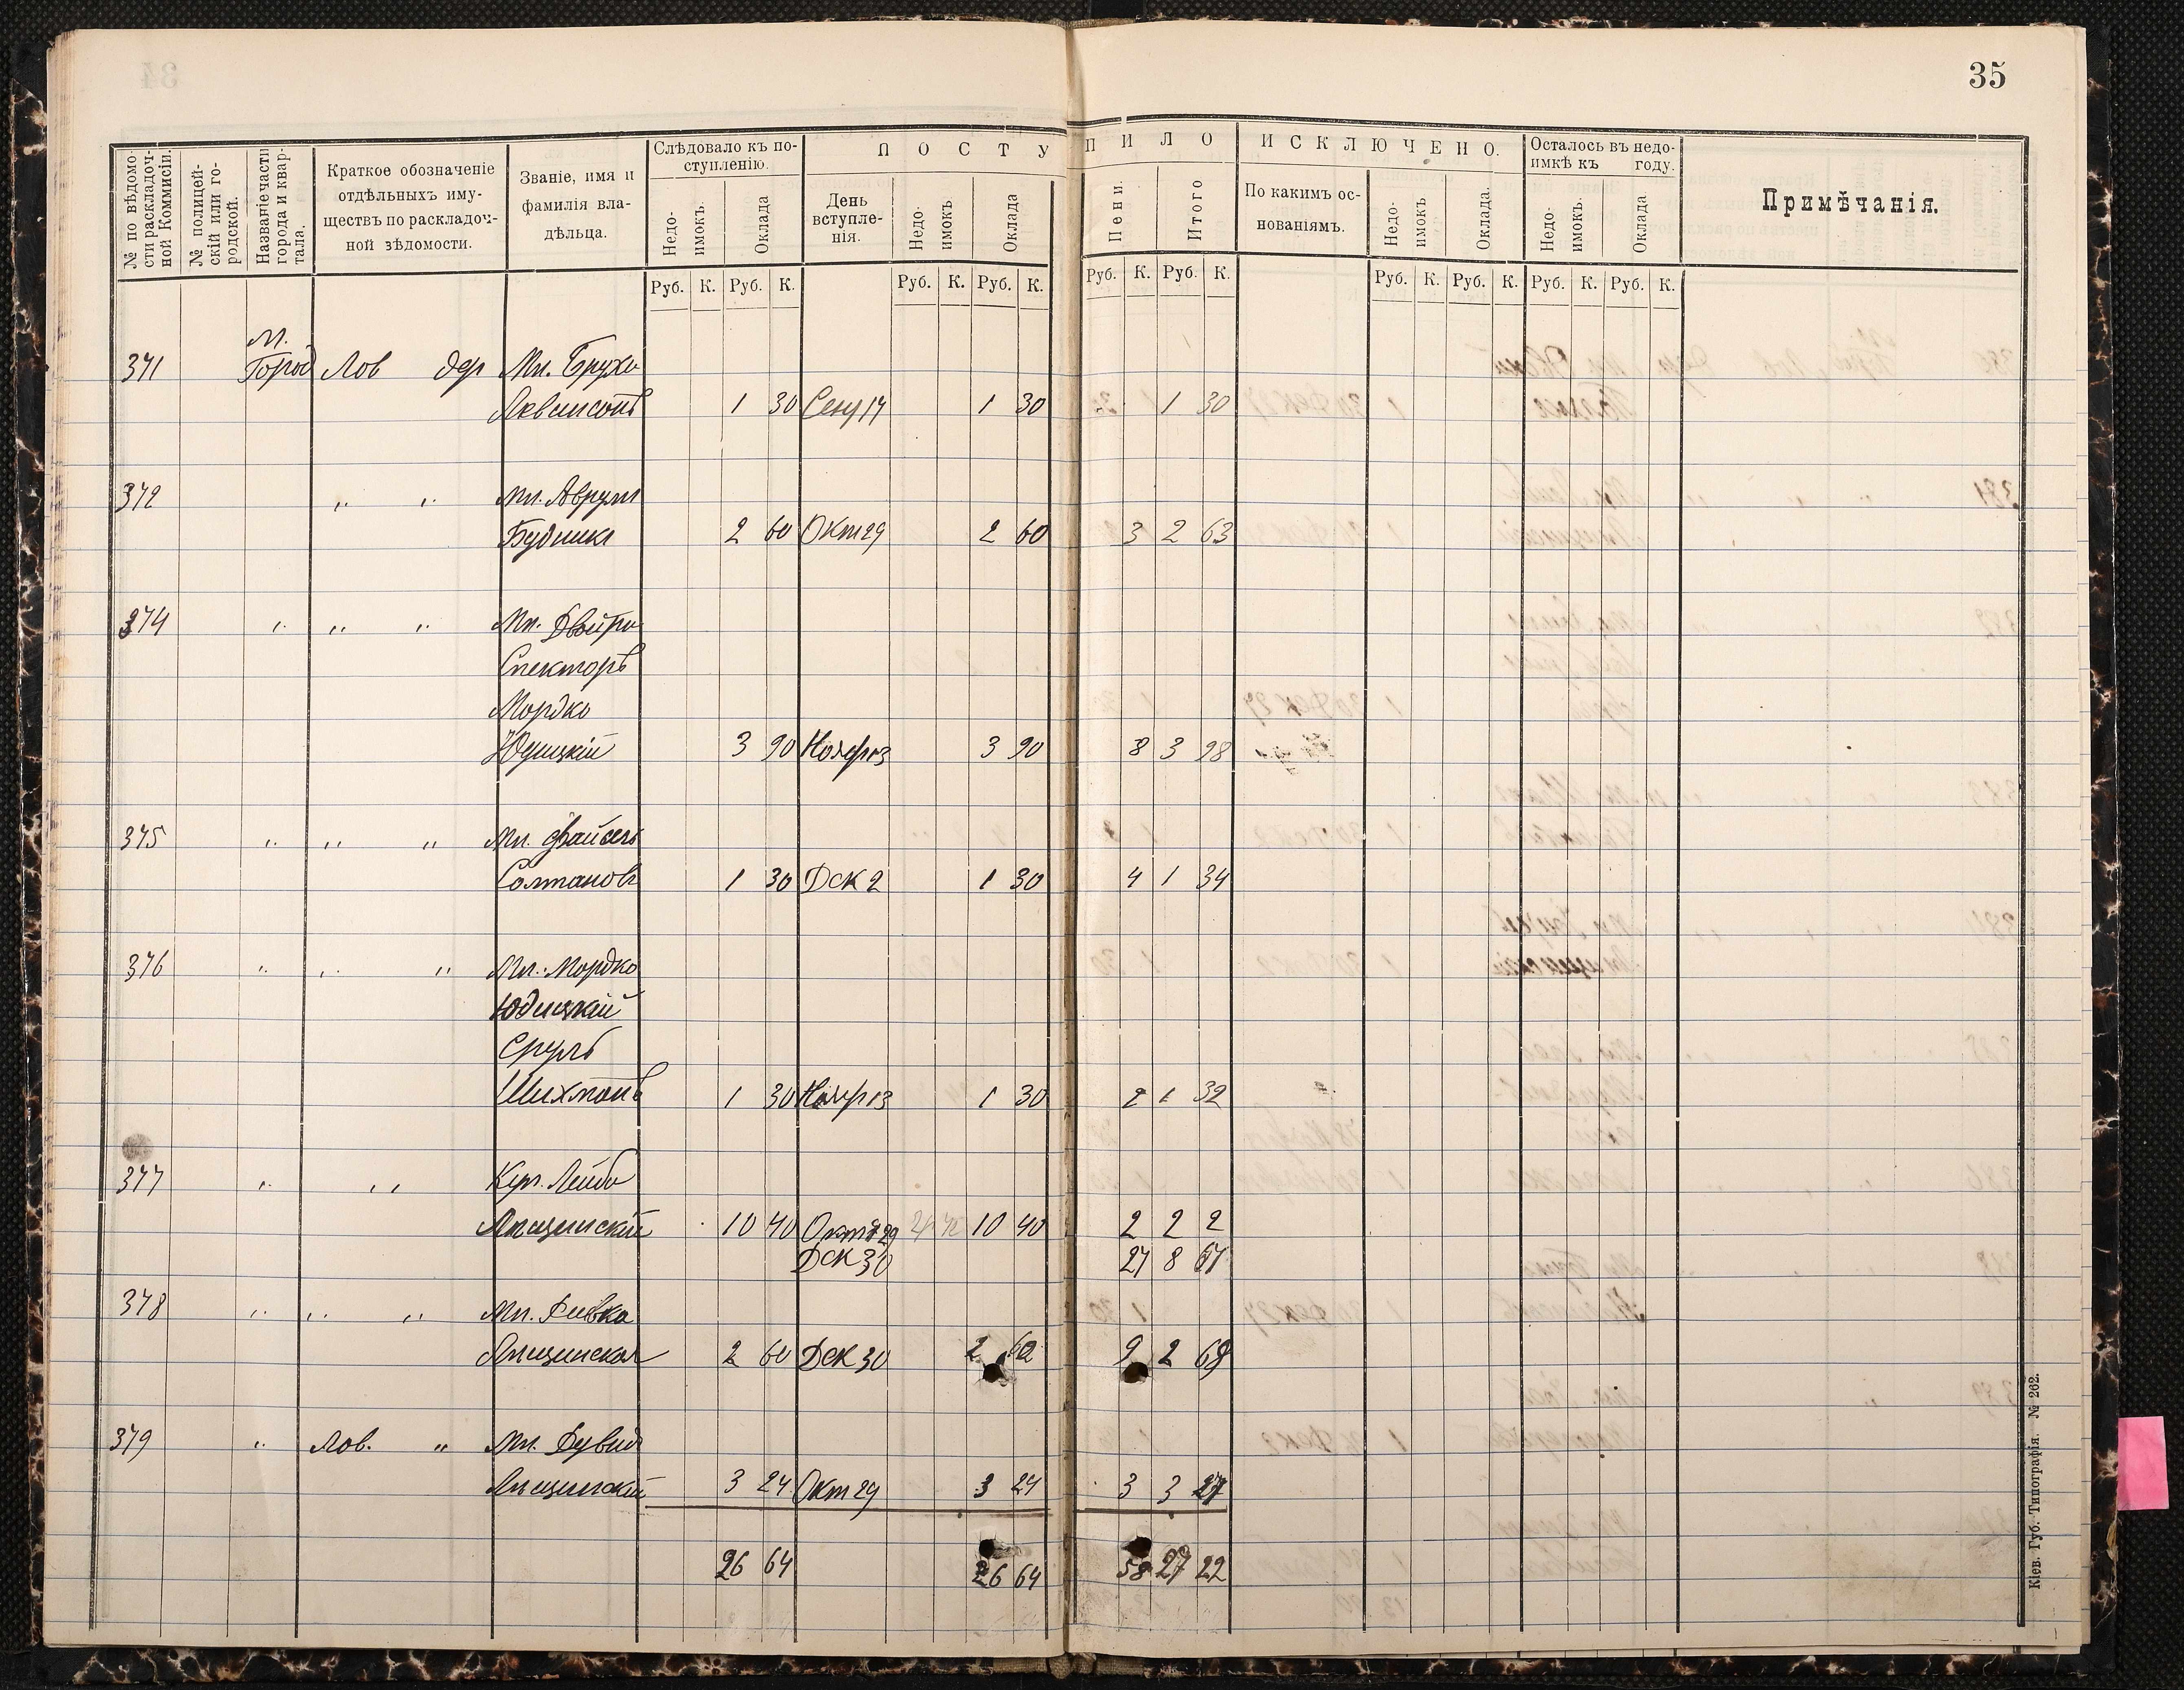 35
№ по вѣдомости раскладочной Коммисіи.
№ полицейскій или городской.
Названіе части города и квартала.
Краткое обозначеніе
отдѣльныхъ иму-
ществъ по раскладоч-
ной зѣдомости.
Званіе, имя и
фамилія вла-
дѣльца.
Слѣдовало къ по-
ступленію.
Недо-
имокъ.
Оклада
П О С Т У П И Л О
День
вступле-
нія.
Недо-
имокъ
Оклада
Пени.
Итого
И С К Л Ю Ч Е Н О.
По какимъ ос-
нованіямъ.
Недо-
имокъ
Оклада.
Осталось въ недо-
имкѣ къ году.
Недо-
имокъ.
Оклада
Примѣчанія.
Руб. К. Руб. К. Руб. К. Руб. К. Руб. К. Руб. К. Руб. К. Руб. К. Руб. К. Руб. К.
М.
371 Город Лов дер Мп. Бруха
1 30 Сен 17 1 30 1 30
372 „ „ Мп. Аврум
Будника 2 60 Окт 29 2 60 3 2 63
374 „ „ „ Мп. Двойра
Спекторъ
Мордко
Юдицкій 3 90 Нояб 13 3 90 8 3 98
375 „ „ „ Мп. Файвель
Солтановъ 1 30 Дек 2 1 30 4 1 34
376 „ „ „ Мп. Мордко
Юдицкій
Сруль
Шихманъ 1 30 Нояб 13 1 30 2 1 32
377 „ „ Куп. Лейба
Лещинскій 10 40 Окт 29 10 40 2 2 2
Дек 30 27 8 67
378 „ „ „ Мп. Ривка
Лещинская 2 60 Дек 30 2 60 9 2 69
379 „ Лов. „ Мп. Рувин
Лещинскій 3 24 Окт 29 3 24 3 3 27
26 64 26 64 58 27 22
Кіев. Губ. Типографія. № 262.